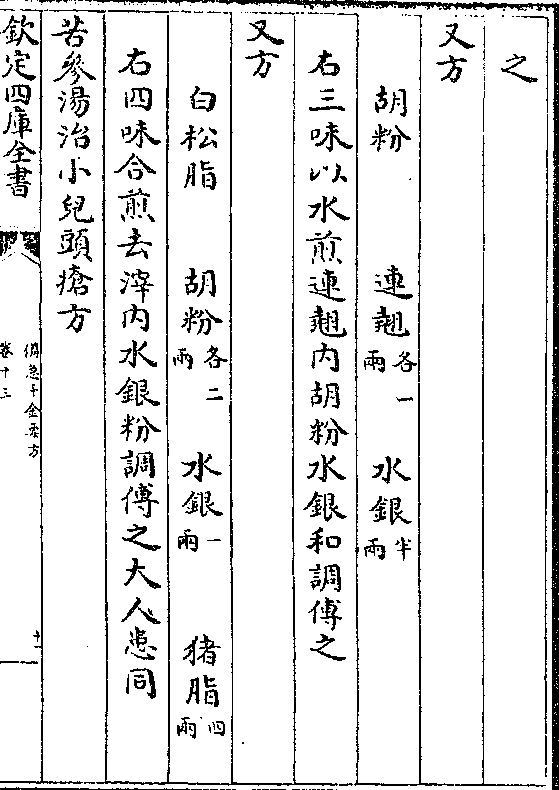 之
又方
胡粉　連翹各一兩　水銀半兩
右三味以水煎連翹内胡粉水銀和調傅之
又方
白松脂　胡粉各二兩　水銀一兩　猪脂四兩
右四味合煎去滓内水銀粉調傅之大人患同
苦參湯治小兒頭瘡方
欽定四庫全書
備急千金要方
卷十三
十一